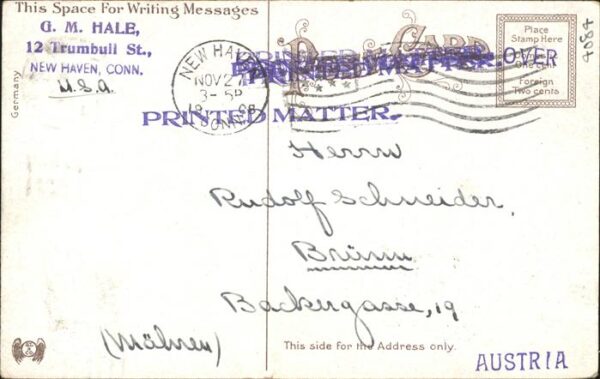 This Space For Writing Messages
G. M. HALE,
12 Trumbull St.,
NEW HAVEN, CONN.
U.S.A.
Germany
NEW HAV
NOV 27
3- 5P
CONN.
POST CARD
PRINTED MATTER.
PRINTED MATTER.
OVER
Place
Stamp Here
one cent
Foreign
Two cents
4084
PRINTED MATTER.
Herrn
Rudolf Schneider,
Brünn
Backergasse, 19
(Mähren)
This side for the Address only.
AUSTRIA